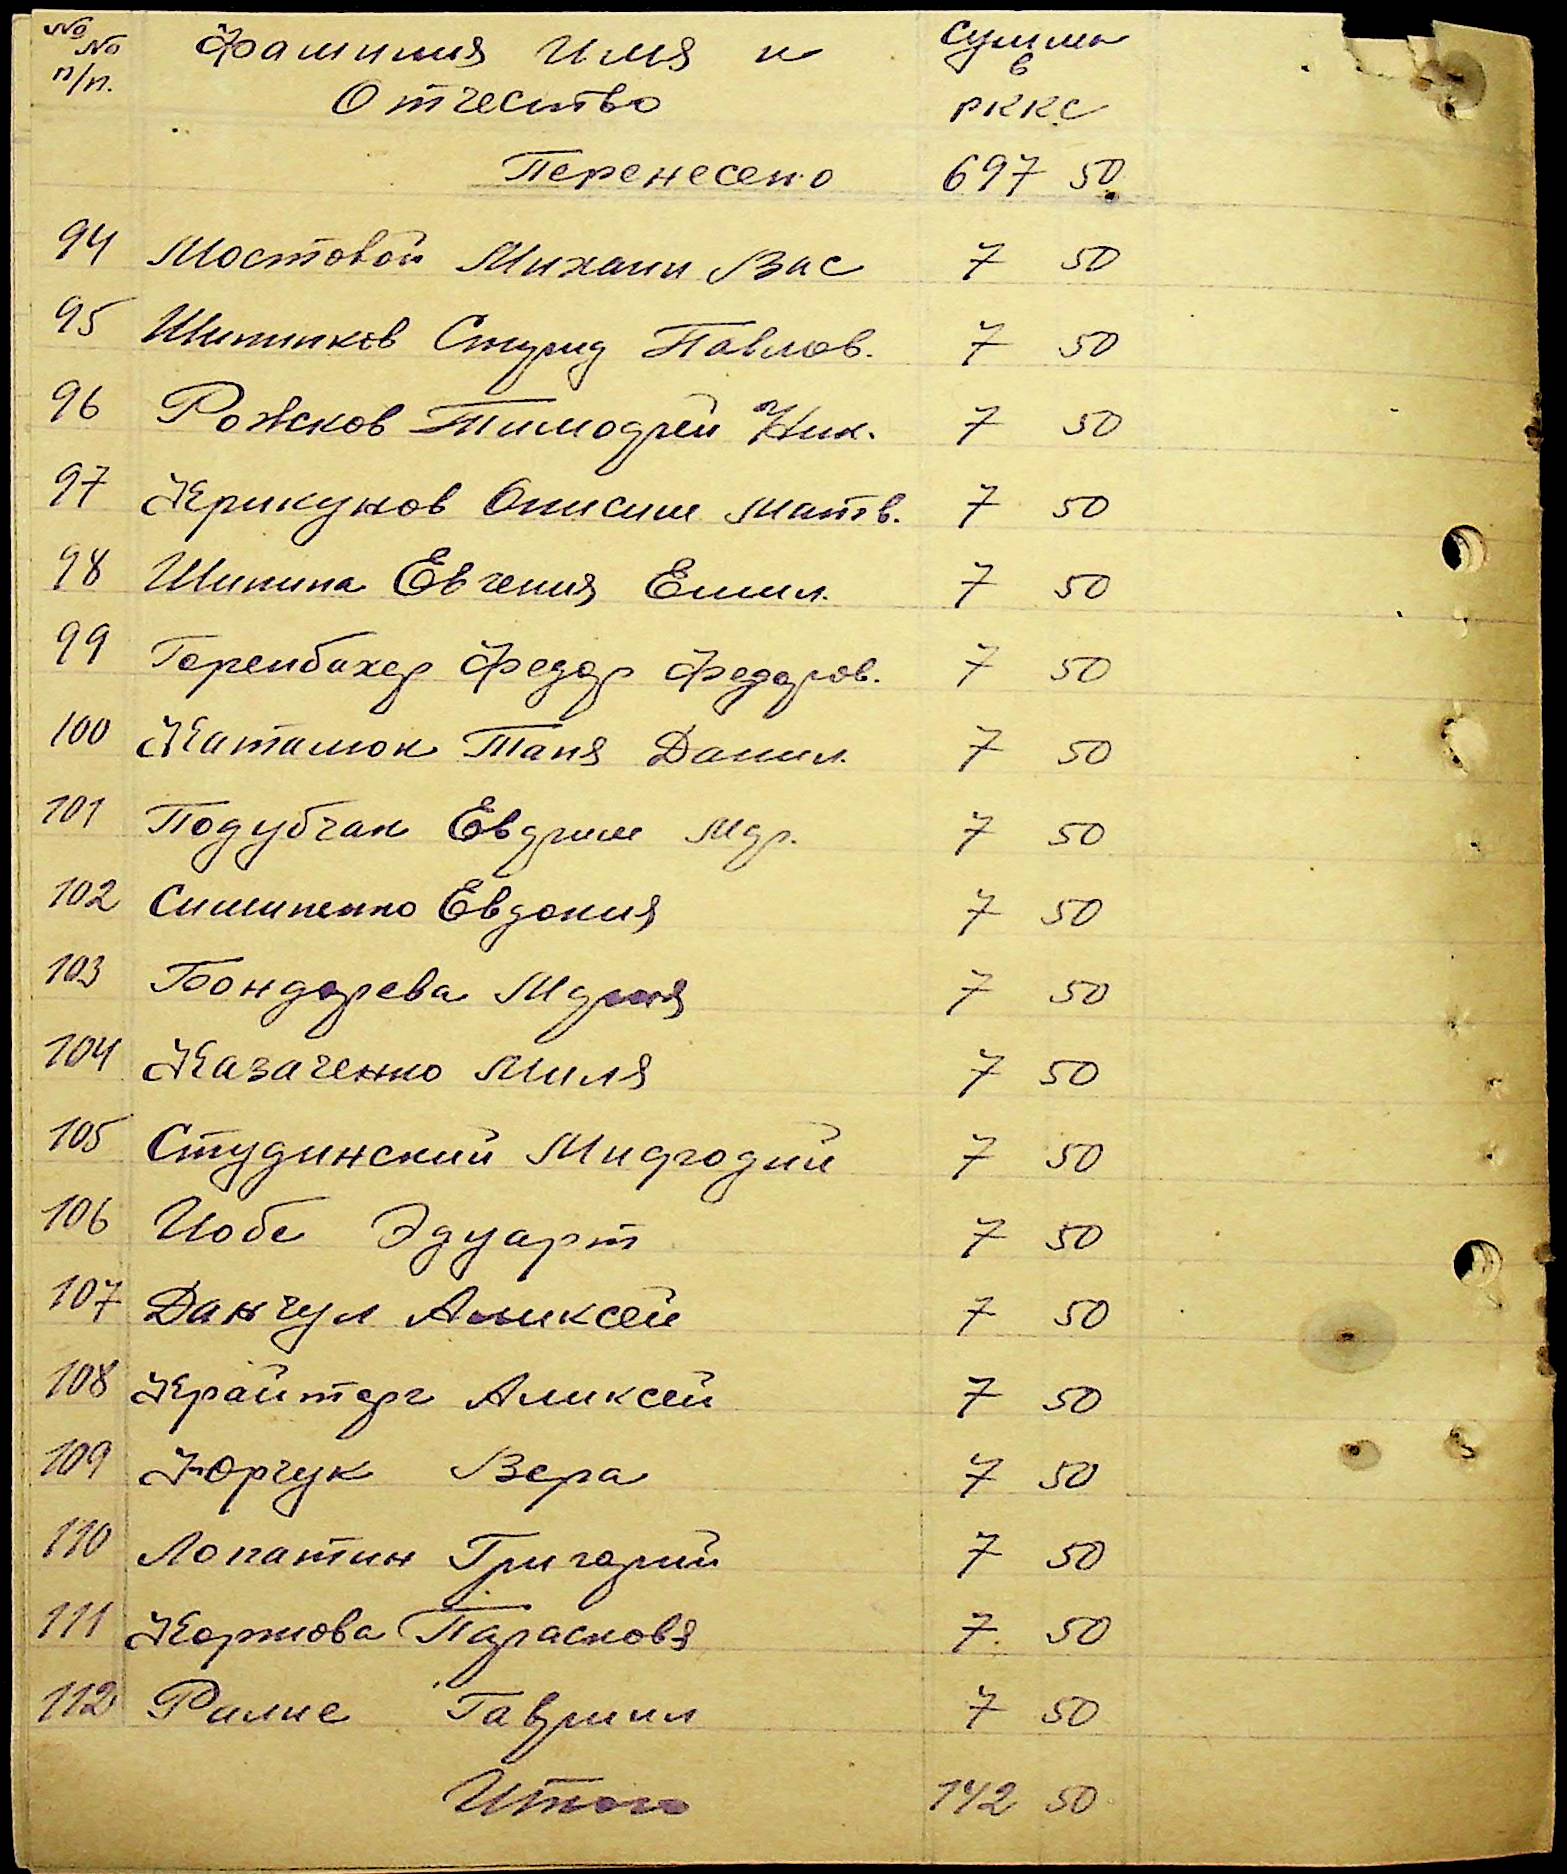 №№ Фамилия Имя и Сумма
п/п. Отчество в
РККС
Перенесено 697 50
94 Мостовой Михаил Вас 7 50
95 Павлов. 7 50
96 Рожков Тимофей Ник. 7 50
97 Крикунов Онисим Матв. 7 50
98 Шипина Евгения Емил. 7 50
99 Геренбахер Федор Федоров. 7 50
100 Каталюк Таня Данил. 7 50
101 Подубчак 7 50
102 Симиненко Евдокия 7 50
103 Бондарева Мария 7 50
104 Казаченко Миля 7 50
105 Студинский Мифгодий 7 50
106 Иобе Эдуарт 7 50
107 Данчул Аликсей 7 50
108 Крайтерг Аликсей 7 50
109 Юрчук Вера 7 50
110 Лопатин Григорий 7 50
111 Парасковя 7 50
112 Ралие Гавриил 7 50
Итого 142 50